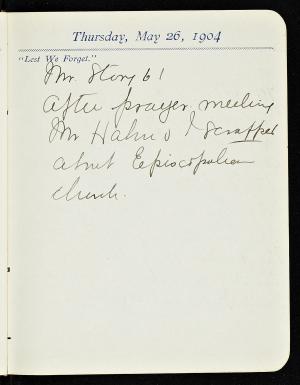 Thursday, May 26, 1904
"Lest We Forget."
Mr. Story 61
After prayer meeting
Mr Hahn & I scrapped
about Episcopalian
church.